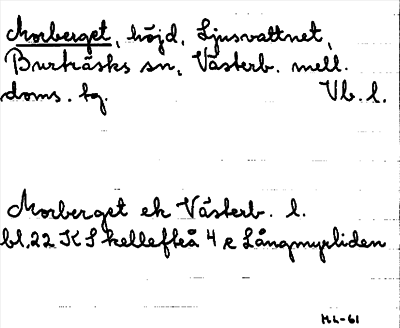 Morberget, höjd, Ljusvattnet,
Burträsks sn, Västerb. mell.
doms. fg. Vb. l.
Morberget ek Västerb. l.
bl. 22 K Skellefteå 4 e Långmyrliden
HL-61